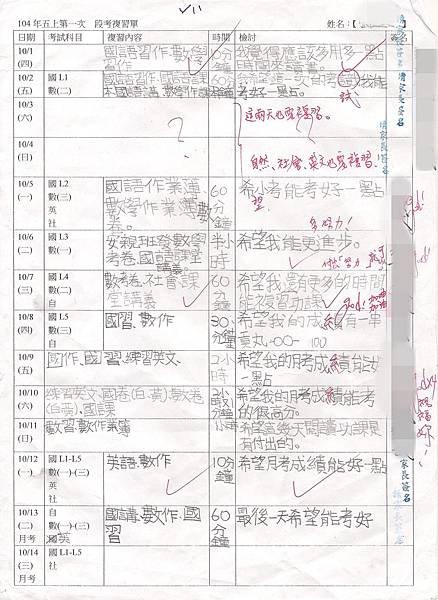 104 年五上第一次 段考複習單 姓名：【
日期 考試科目 複習內容 時間 檢討 簽名
10/1
(四)
國語習作、數學
習作
60分鐘
我覺得應該多用多一點
時間來讀書。
10/2
(五)
國 L1
數(二)
國語習作、國語課
本國語講、數學作課
60分鐘
希望這一次月考 我能
考好一點。
試
請家長簽名
10/3
(六)
?
這兩天也要複習。
10/4
(日)
自然、社會、英文也要複習.
請家長簽名
10/5
(一)
國 L2
數(三)
英
社
國語作業簿、
數學作業簿、數
卷。
60分鐘
希小考能考好一點
望
多努力!
10/6
(二)
國 L3
數(一)
女親班發數學
考卷、國語課堂
講義
半小時
希望我能更進步。
10/7
(三)
國 L4
數(二)
自
數考卷、社會課
堂講義
60分鐘
希望我還有更多的時間
能複習功課
10/8
(四)
國 L5
數(三)
國習、數作
30分鐘
希望我的成績有一串
章丸:00- 100
10/9
(五)
國作、國習、練習英文、
2小時
希望我的月考成績能好
一點
10/10
(六)
練習英文、國卷(白、黃)、數卷
(白黃)、國課
希望我的月考成績能考
的很高分。
10/11
(日)
數習、數作業簿
希望這幾天閱讀功課是
有付出的。
10/12
(一)
國 L1-L5
數(一)-(三)
英
社
英語、數作
10分鐘
希望月考成績能好一點
家長簽名
10/13
(二)
月考
自
數(一)-(三)
英
國講、數作、國
習
60分鐘
最後一天希望能考好
10/14
(三)
月考
國 L1-L5
社